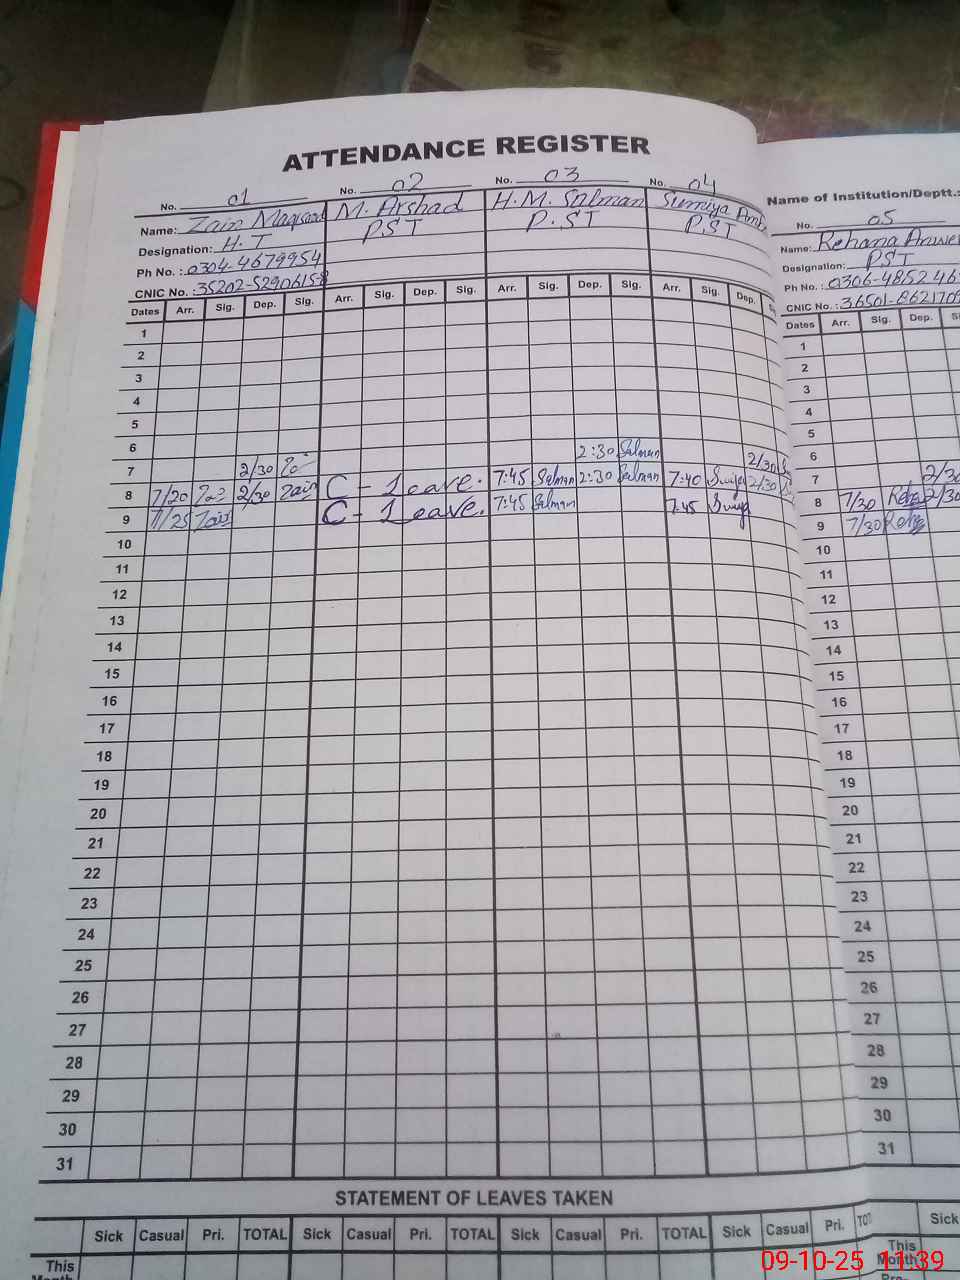 ATTENDANCE REGISTER
No. 01 No. 02 No. 03 No. 04
Name: Zain Maqsood M. Arshad H.M. Salman Sumiya
Designation: H.T PST P.ST P.ST
Ph No.: 0304-4679954
CNIC No.: 35202-5290615-8
Dates Arr. Sig. Dep. Sig. Arr. Sig. Dep. Sig. Arr. Sig. Dep. Sig. Arr. Sig. Dep.
1
2
3
4
5
6
7 2/30 2:30 Salman 2/30
8 7/20 2/30 Zain C-Leave. 7:45 Salman 2:30 Salman 7:40 2/30
9 7/25 Zain C-Leave. 7:45 Salman 7:45
10
11
12
13
14
15
16
17
18
19
20
21
22
23
24
25
26
27
28
29
30
31
STATEMENT OF LEAVES TAKEN
Sick Casual Pri. TOTAL Sick Casual Pri. TOTAL Sick Casual Pri. TOTAL Sick Casual Pri.
This
Name of Institution/Deptt.:
No. 05
Name: Rehana
Designation: PST
Ph No.: 0306-485246
CNIC No.: 36501-862170
Dates Arr. Sig. Dep.
1
2
3
4
5
6
7 2/30
8 7/30 2/30
9 7/30
10
11
12
13
14
15
16
17
18
19
20
21
22
23
24
25
26
27
28
29
30
31
Sick
This
Month
09-10-25 11:39